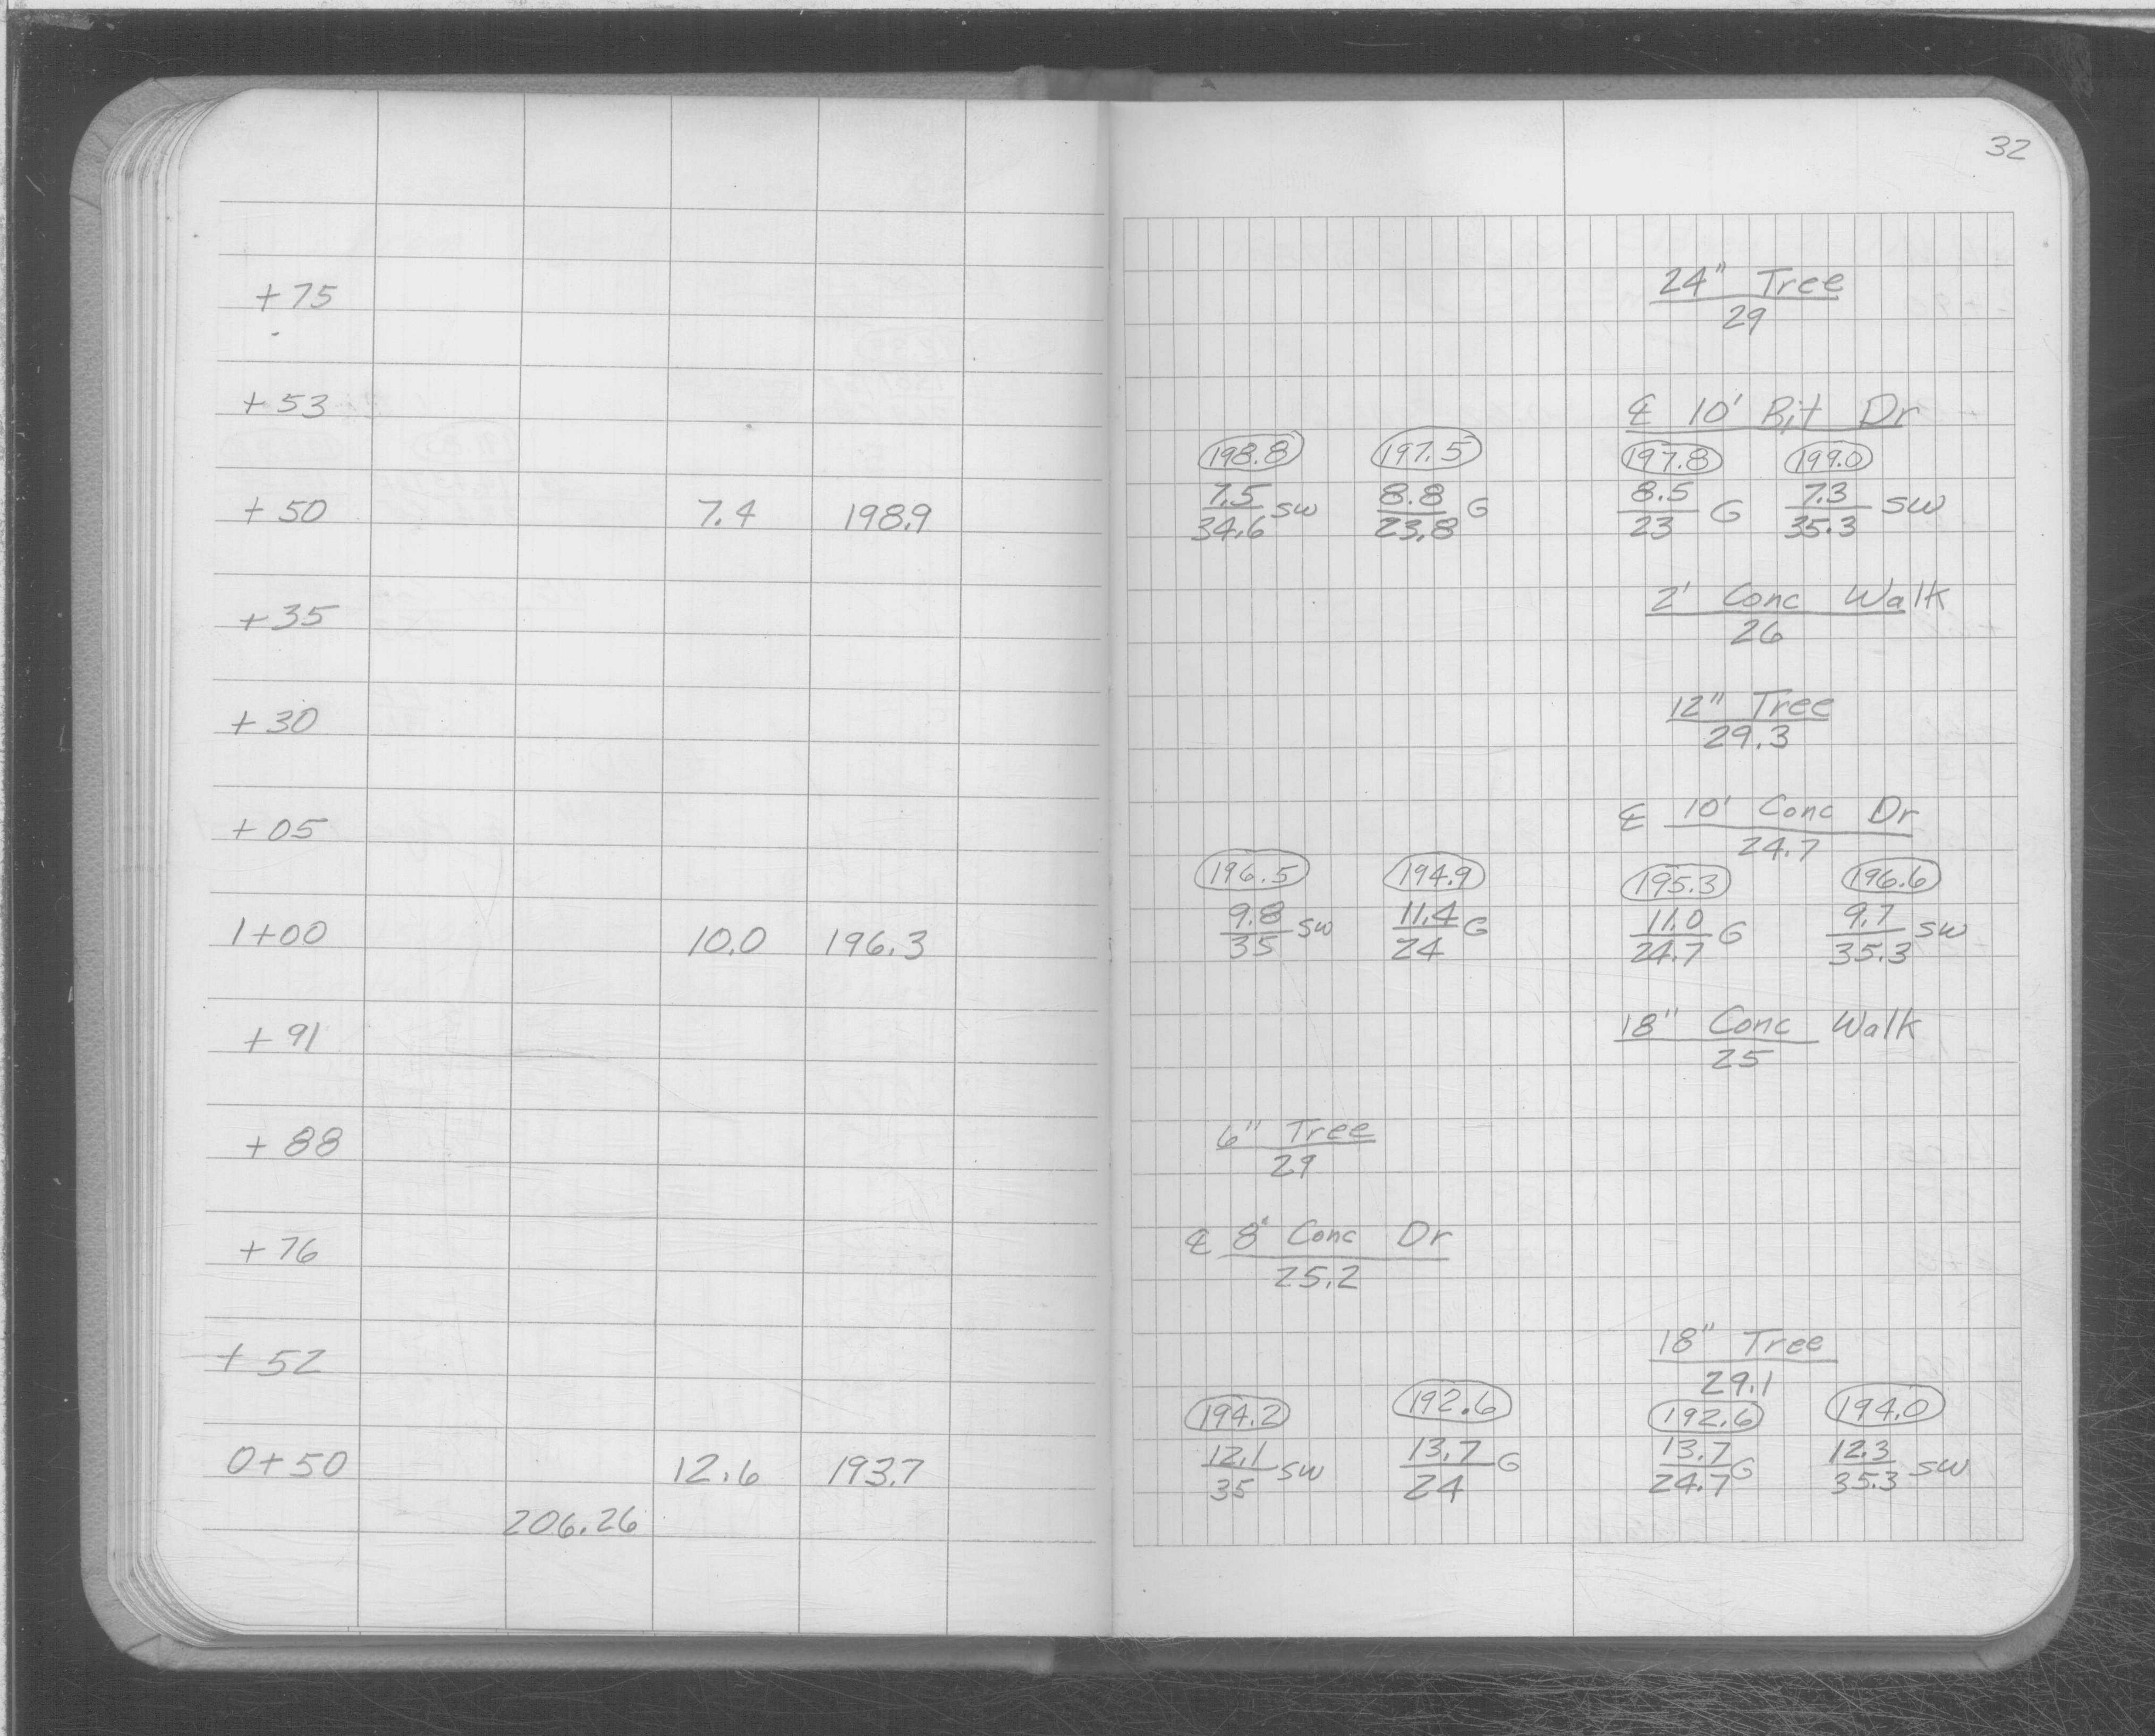 32
+75 24" Tree
29
+53 ℄ 10' Bit Dr
198.8 197.5 197.8 199.0
+50 7.4 198.9 7.5/34.6 SW 8.8/23.8 G 8.5/23 G 7.3/35.3 SW
+35 2' Conc Walk
26
+30 12" Tree
29.3
+05 ℄ 10' Conc Dr
24.7
196.5 194.9 195.3 196.6
1+00 10.0 196.3 9.8/35 SW 11.4/24 G 11.0/24.7 G 9.7/35.3 SW
+91 18" Conc Walk
25
+88 6" Tree
29
+76 ℄ 8' Conc Dr
25.2
+52 18" Tree
29.1
194.2 192.6 192.6 194.0
0+50 12.6 193.7 12.1/35 SW 13.7/24 G 13.7/24.7 G 12.3/35.3 SW
206.26